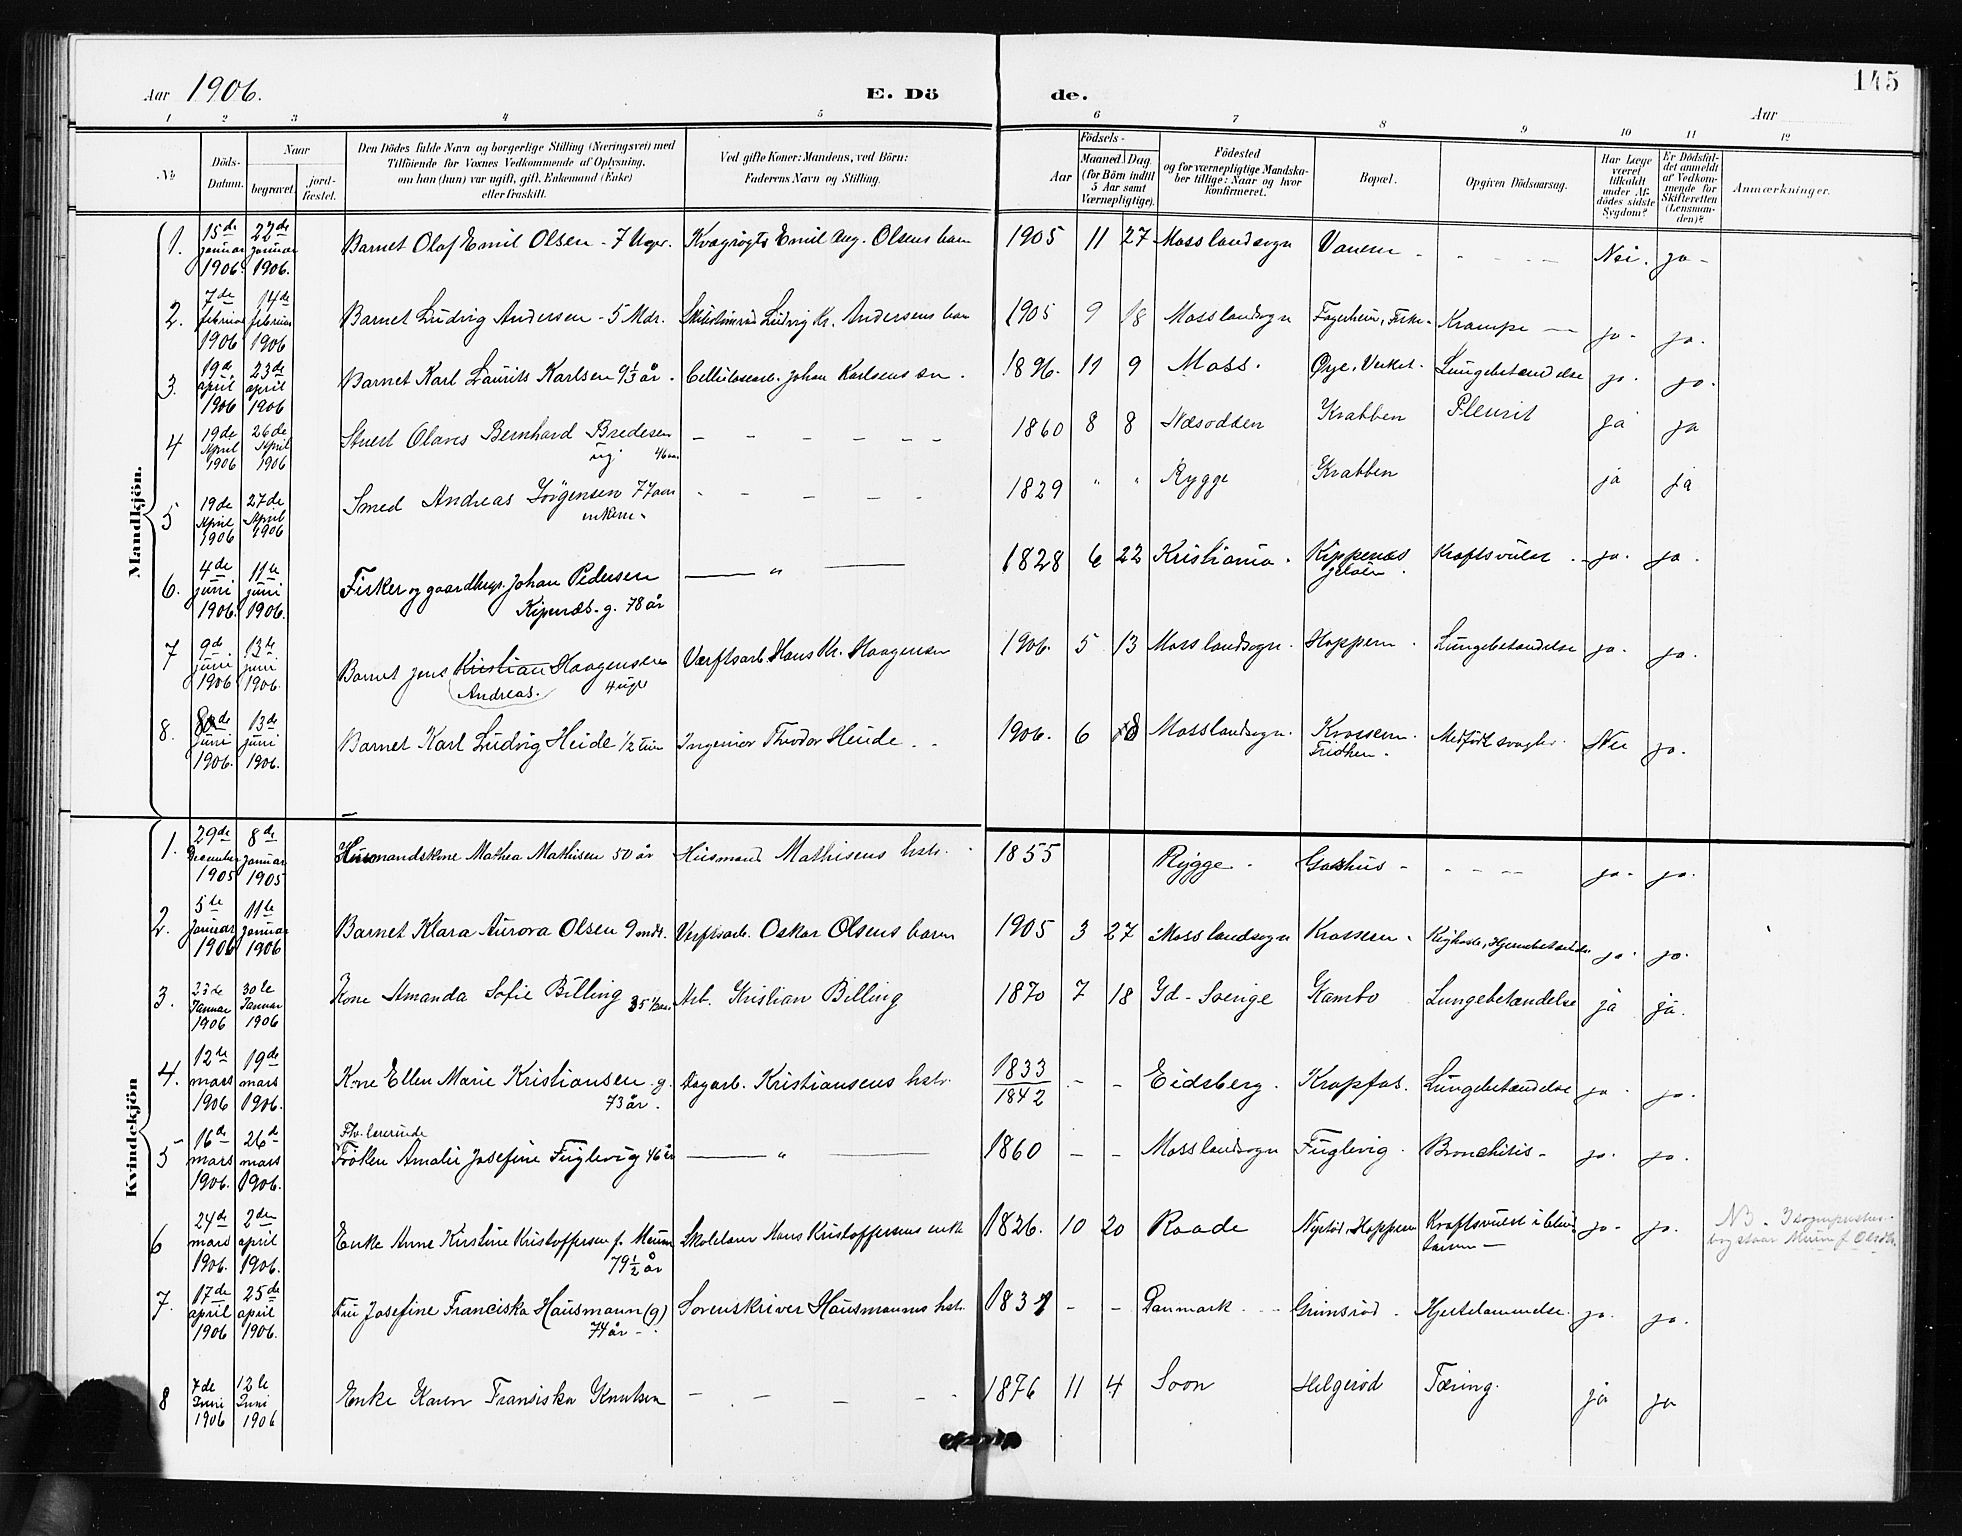 Aar 1906. E. Dö de. Aar 145
1 2 3 4 5 6 7 8 9 10 11 12
No.
Döds-
Datum.
Naar
begravet.
jord-
fæstet.
Den Dödes fulde Navn og borgerlige Stilling (Næringsvei) med
Tilföiende for Voxnes Vedkommende af Oplysning,
om han (hun) var ugift, gift, Enkemand (Enke)
eller fraskilt.
Ved gifte Koner: Mandens, ved Börn:
Faderens Navn og Stilling.
Födsels-
Aar
Maaned.
Dag.
(for Börn indtil
5 Aar samt
Værnepligtige).
Födested
og for værnepligtige Mandska-
ber tillige: Naar og hvor
konfirmeret.
Bopæl.
Opgiven Dödsaarsag.
Har Læge
været
tilkaldt
under Af-
dödes sidste
Sygdom?
Er Dödsfal-
det anmeldt
af Vedkom-
mende for
Skifteretten
(Lensman-
den)?
Anmærkninger.
Mandkjön.
1. 15de januar 1906. 22de januar 1906. Barnet Olaf Emil Olsen - 7 Uger. Kvægrögts Emil Aug. Olsens barn 1905 11 27 Moss landsogn Vanem - - - - - Nei. ja -
2. 7de februar 1906 14de februar 1906 Barnet Ludvig Andersen - 5 Mdr. Ludvig Kr. Andersens barn 1905 9 18 Moss landsogn Fagerheim, Krampe - ja - ja.
3. 19de april 1906 23de april 1906 Barnet Karl Laurits Karlsen 9 1/3 år. Cellulosearb. Johan Karlsens sn. 1896. 11 9 Moss. Øye, Verket. Lungebetændelse ja. ja.
4 19de April 1906 26de April 1906 Stuert Olaves Bernhard Bredesen ug. 46 aar - - - - - - 1860 8 8 Næsodden Krabben Pleurit ja ja
5 19de April 1906 27de April 1906 Smed Andreas Jörgensen 77 aar enkem. - - - - - 1829 " " Rygge Krabben ja ja
6. 4de juni 1906. 11te juni 1906. Fisker og gaardbrgr. Johan Pedersen
Kipenæs. g. 78 år — " — 1828 6 22 Kristiania. Kippenæs
Jeløen. Kræftsvulst - ja. ja.
7 9de. juni 1906 13de juni 1906. Barnet Jens Kristian Haagensen
(Andreas.) 4 uger Værftsarb. Hans Kr. Haagensen 1906. 5 13 Moss landsogn. Hoppern. Lungebetændelse ja. ja.
8. 8de juni 1906. 13de juni 1906. Barnet Karl Ludvig Heide 1/2 time Ingeniør Theodor Heide. - - 1906. 6 8 Moss landsogn. Krossern.
Medfødt svaghed. Nei ja.
Kvindekjön
1. 29de December 1905 8de januar 1905 Husmandskone Mathea Mathisen 50 år Husmand Mathisens hstr. 1855 Rygge - Gashus - - - - - ja - ja.
2. 5te januar 1906 11te januar 1906 Barnet Klara Aurora Olsen 9 mdr. Verftsarb. Oskar Olsens barn 1905 3 27 Moss landsogn Krossern. Kighoste, Hjernebetændelse ja. ja.
3. 23de Januar 1906 30te Januar 1906 Kone Amanda Sofie Billing 35 1/2 aar. Arb. Kristian Billing 1870 7 18 Id - Sverige Kambo Lungebetændelse ja ja.
4. 12te mars 1906 19de mars 1906. Kone Ellen Marie Kristiansen g.
73 år. Dagarb. Kristiansens hstr. 1833
1842 - - Eidsberg. Krapfos. Lungebetændelse ja. ja.
5 16de mars 1906. 26de mars 1906. Fhv. lærerinde
Frøken Amalie Josefine Fuglevig 46 år — " — 1860 - - Moss landsogn Fuglevig. Bronchitis - ja. ja.
6 24de mars 1906. 2den april 1906. Enke Anne Kirstine Kristoffersen f.
79 1/2 år Skolelærer Hans Kristoffersens enke 1826. 10 20 Raade Hoppern Kræftsvulst i ja - ja. NB.
7. 17de april 1906 25de april 1906. Fru Josefine Franciska Hausmann (g)
74 år - Sorenskriver Hausmanns hstr. 1831 - - Danmark - - Grimsrød. Hjertelammelse. ja. ja.
8 7de Juni 1906 12te Juni 1906 Enke Karen Fransiska Knutsen - - - - 1876 11 4 Soon Helgerød Tæring. ja ja